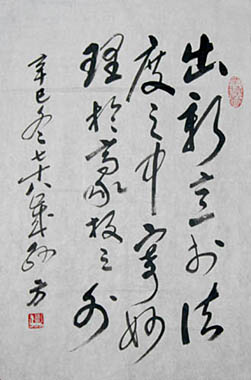 出新意於法
度之中寄妙
理於豪放之外
辛巳冬七十八歲孫方